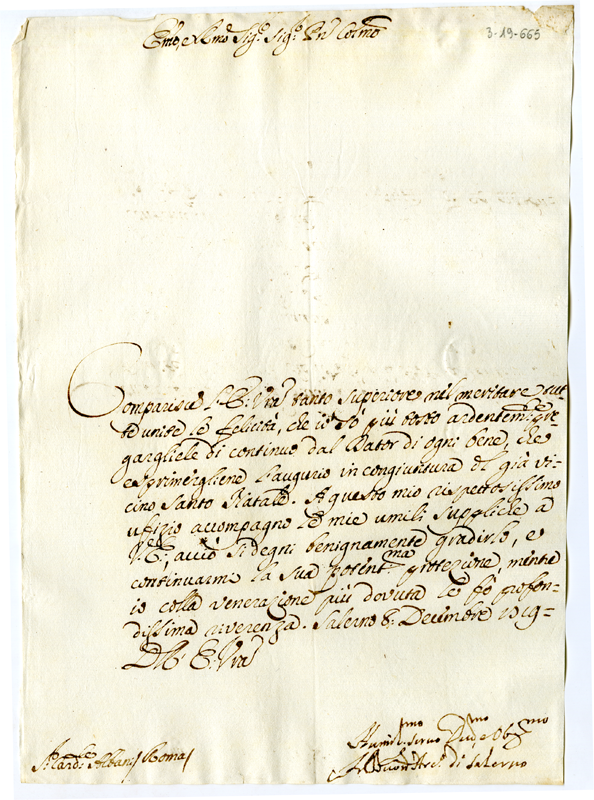 Emo, e Rmo Sig.r Sig.r Pne Colmo
3-19-665
Comparisce l'E: Vra tanto superiore nel meritare tut-
te unite le felicità, che io sò più tosto ardentemte pre-
gargliele di continuo dal Dator di ogni bene, che
esprimergliene l'augurio in congiuntura del già vi-
cino Santo Natale. A questo mio rispettosissimo
ufizio accompagno le mie umili suppliche a
V.E., acciò si degni benignamente gradirlo, e
continuarmi la sua potentma protezione, mentre
io colla venerazione più dovuta le fò profon-
dissima riverenza. Salerno 8: Decembre 1719=
Dell' E: Vra
Humilmo servo Devmo Obmo
Arcivo di Salerno
Sr Card. Albani Roma